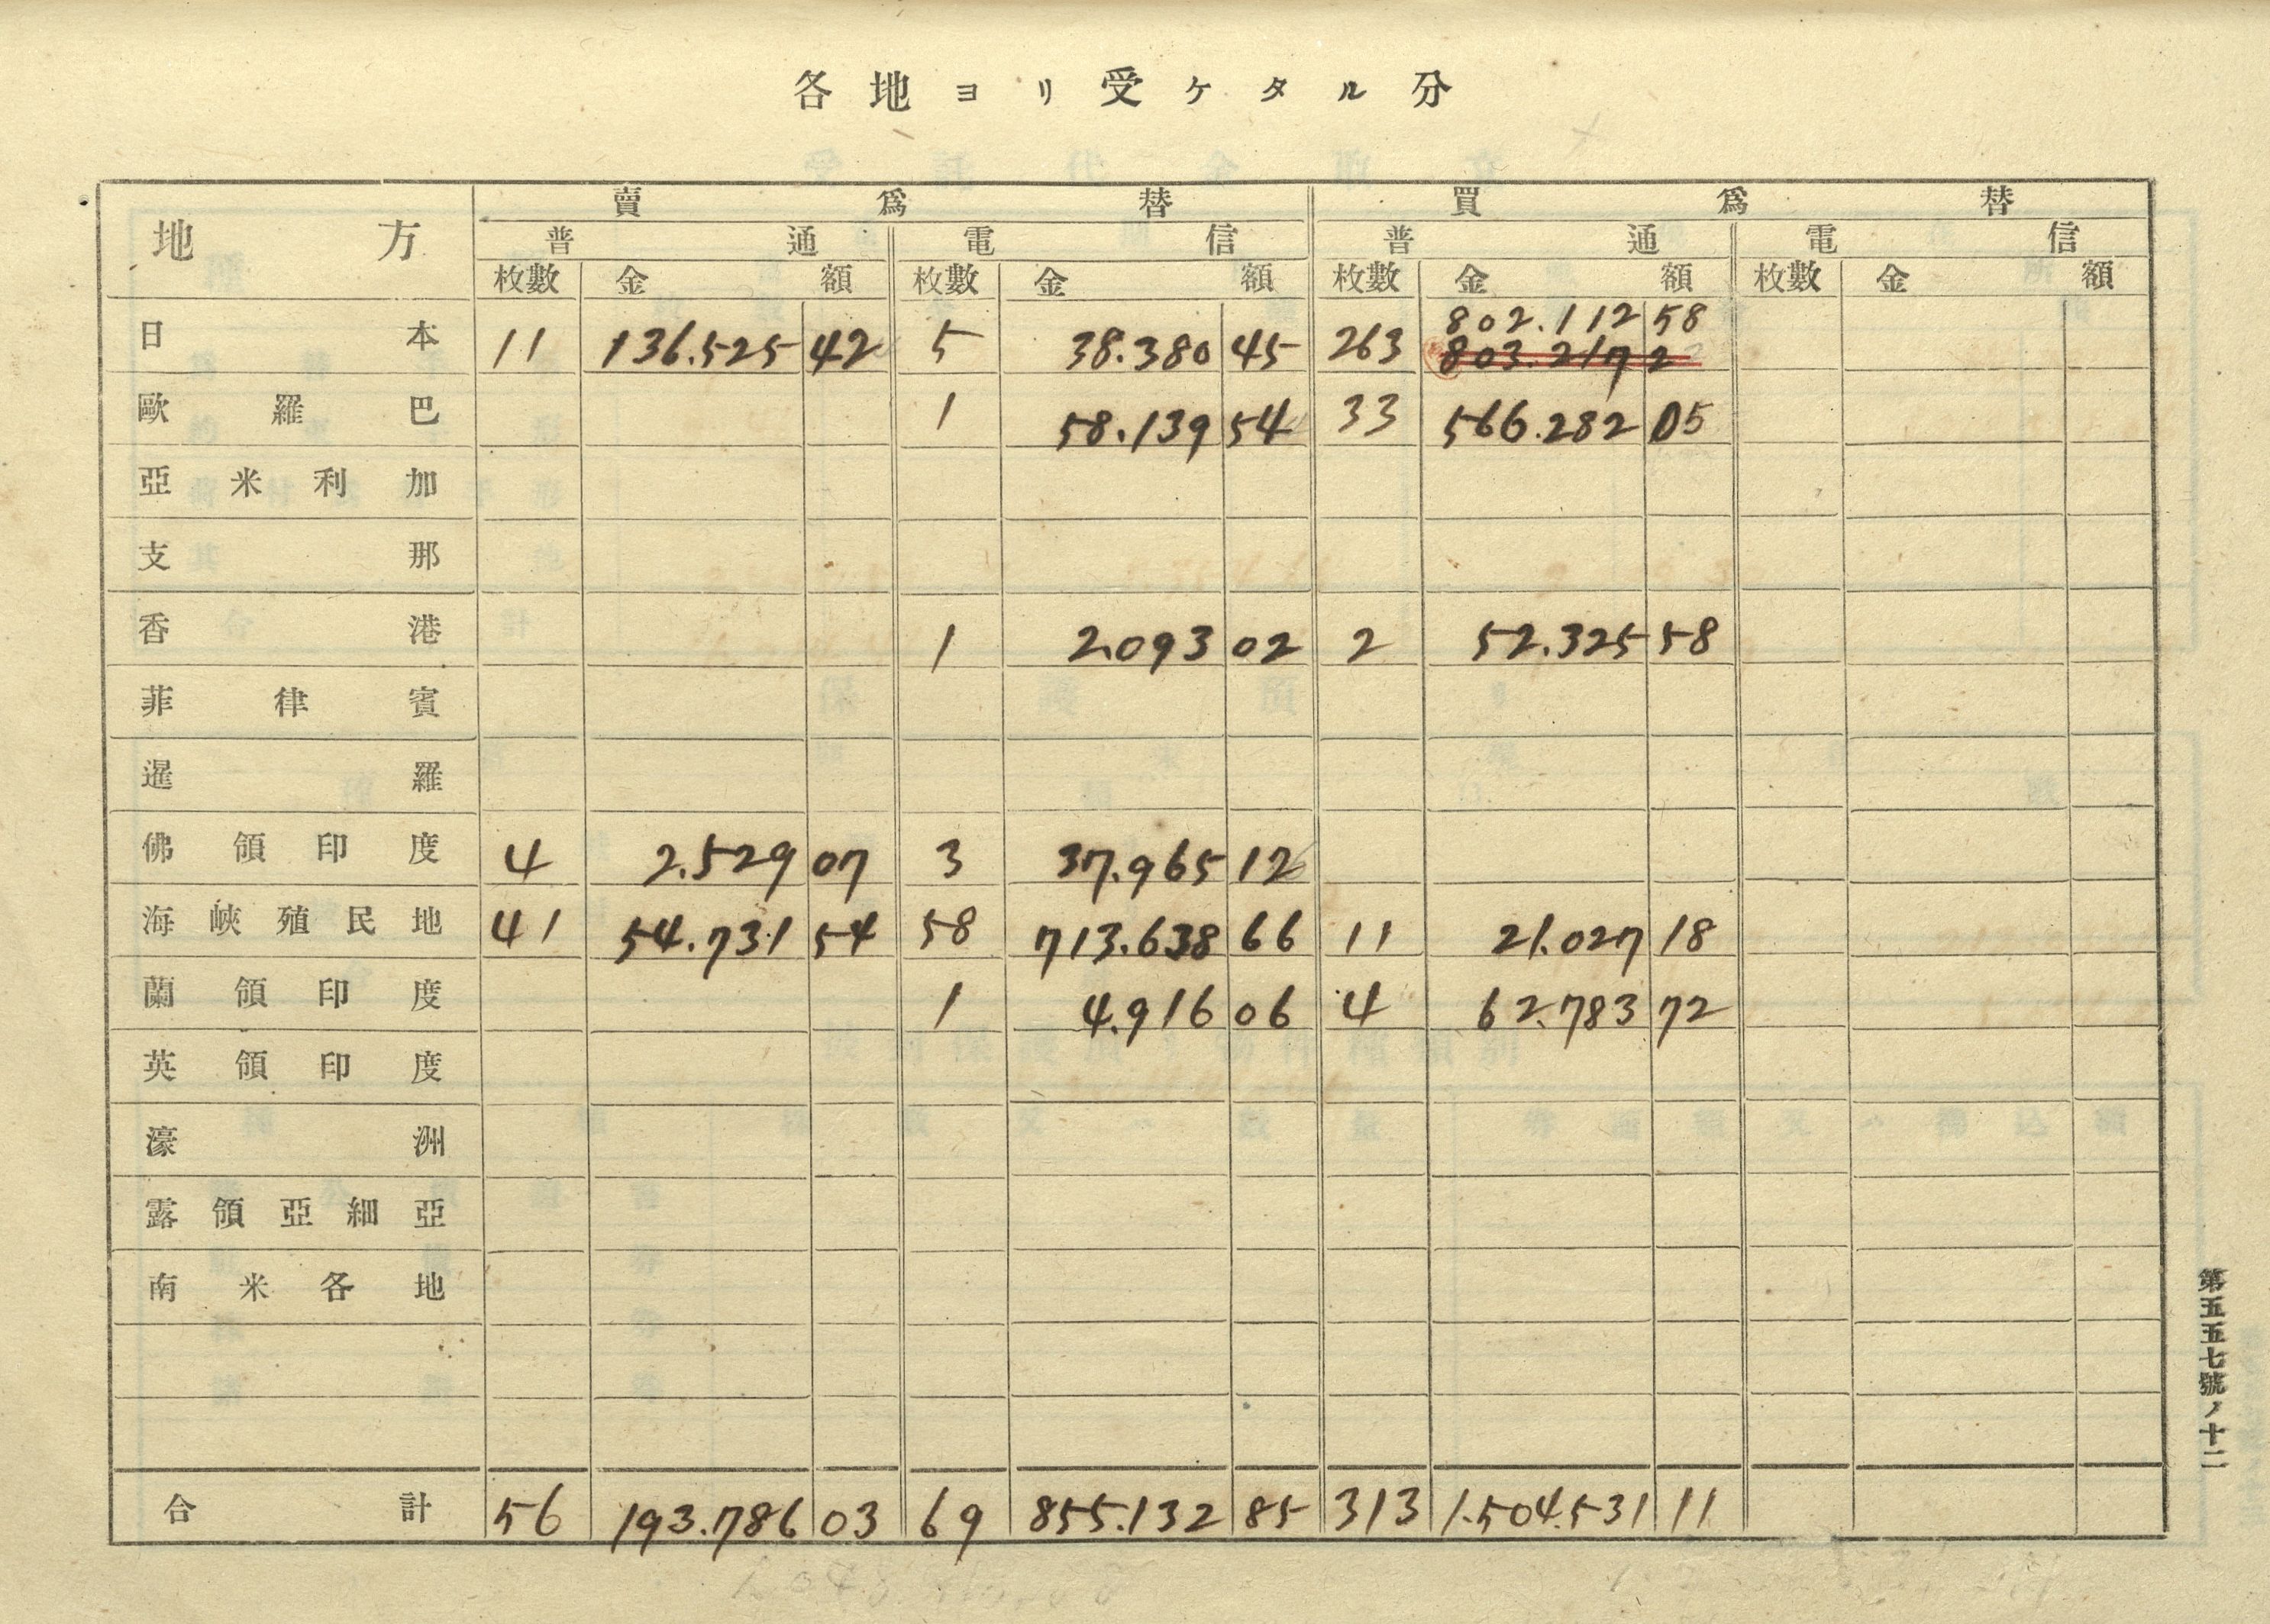 各地ヨリ受ケタル分
地方 賣爲替 買爲替
普通 電信 普通 電信
枚數 金額 枚數 金額 枚數 金額 枚數 金額
802.112 58
日本 11 136.525 42 5 38.380 45 263 803.217 2
歐羅巴 1 58.139 54 33 566.282 05
亞米利加
支那
香港 1 2.093 02 2 52.325 58
菲律賓
暹羅
佛領印度 4 2.529 07 3 37.965 12
海峽殖民地 41 54.731 54 58 713.638 66 11 21.027 18
蘭領印度 1 4.916 06 4 62.783 72
英領印度
濠洲
露領亞細亞
南米各地
合計 56 193.786 03 69 855.132 85 313 1.504.531 11
第五五七號ノ十二